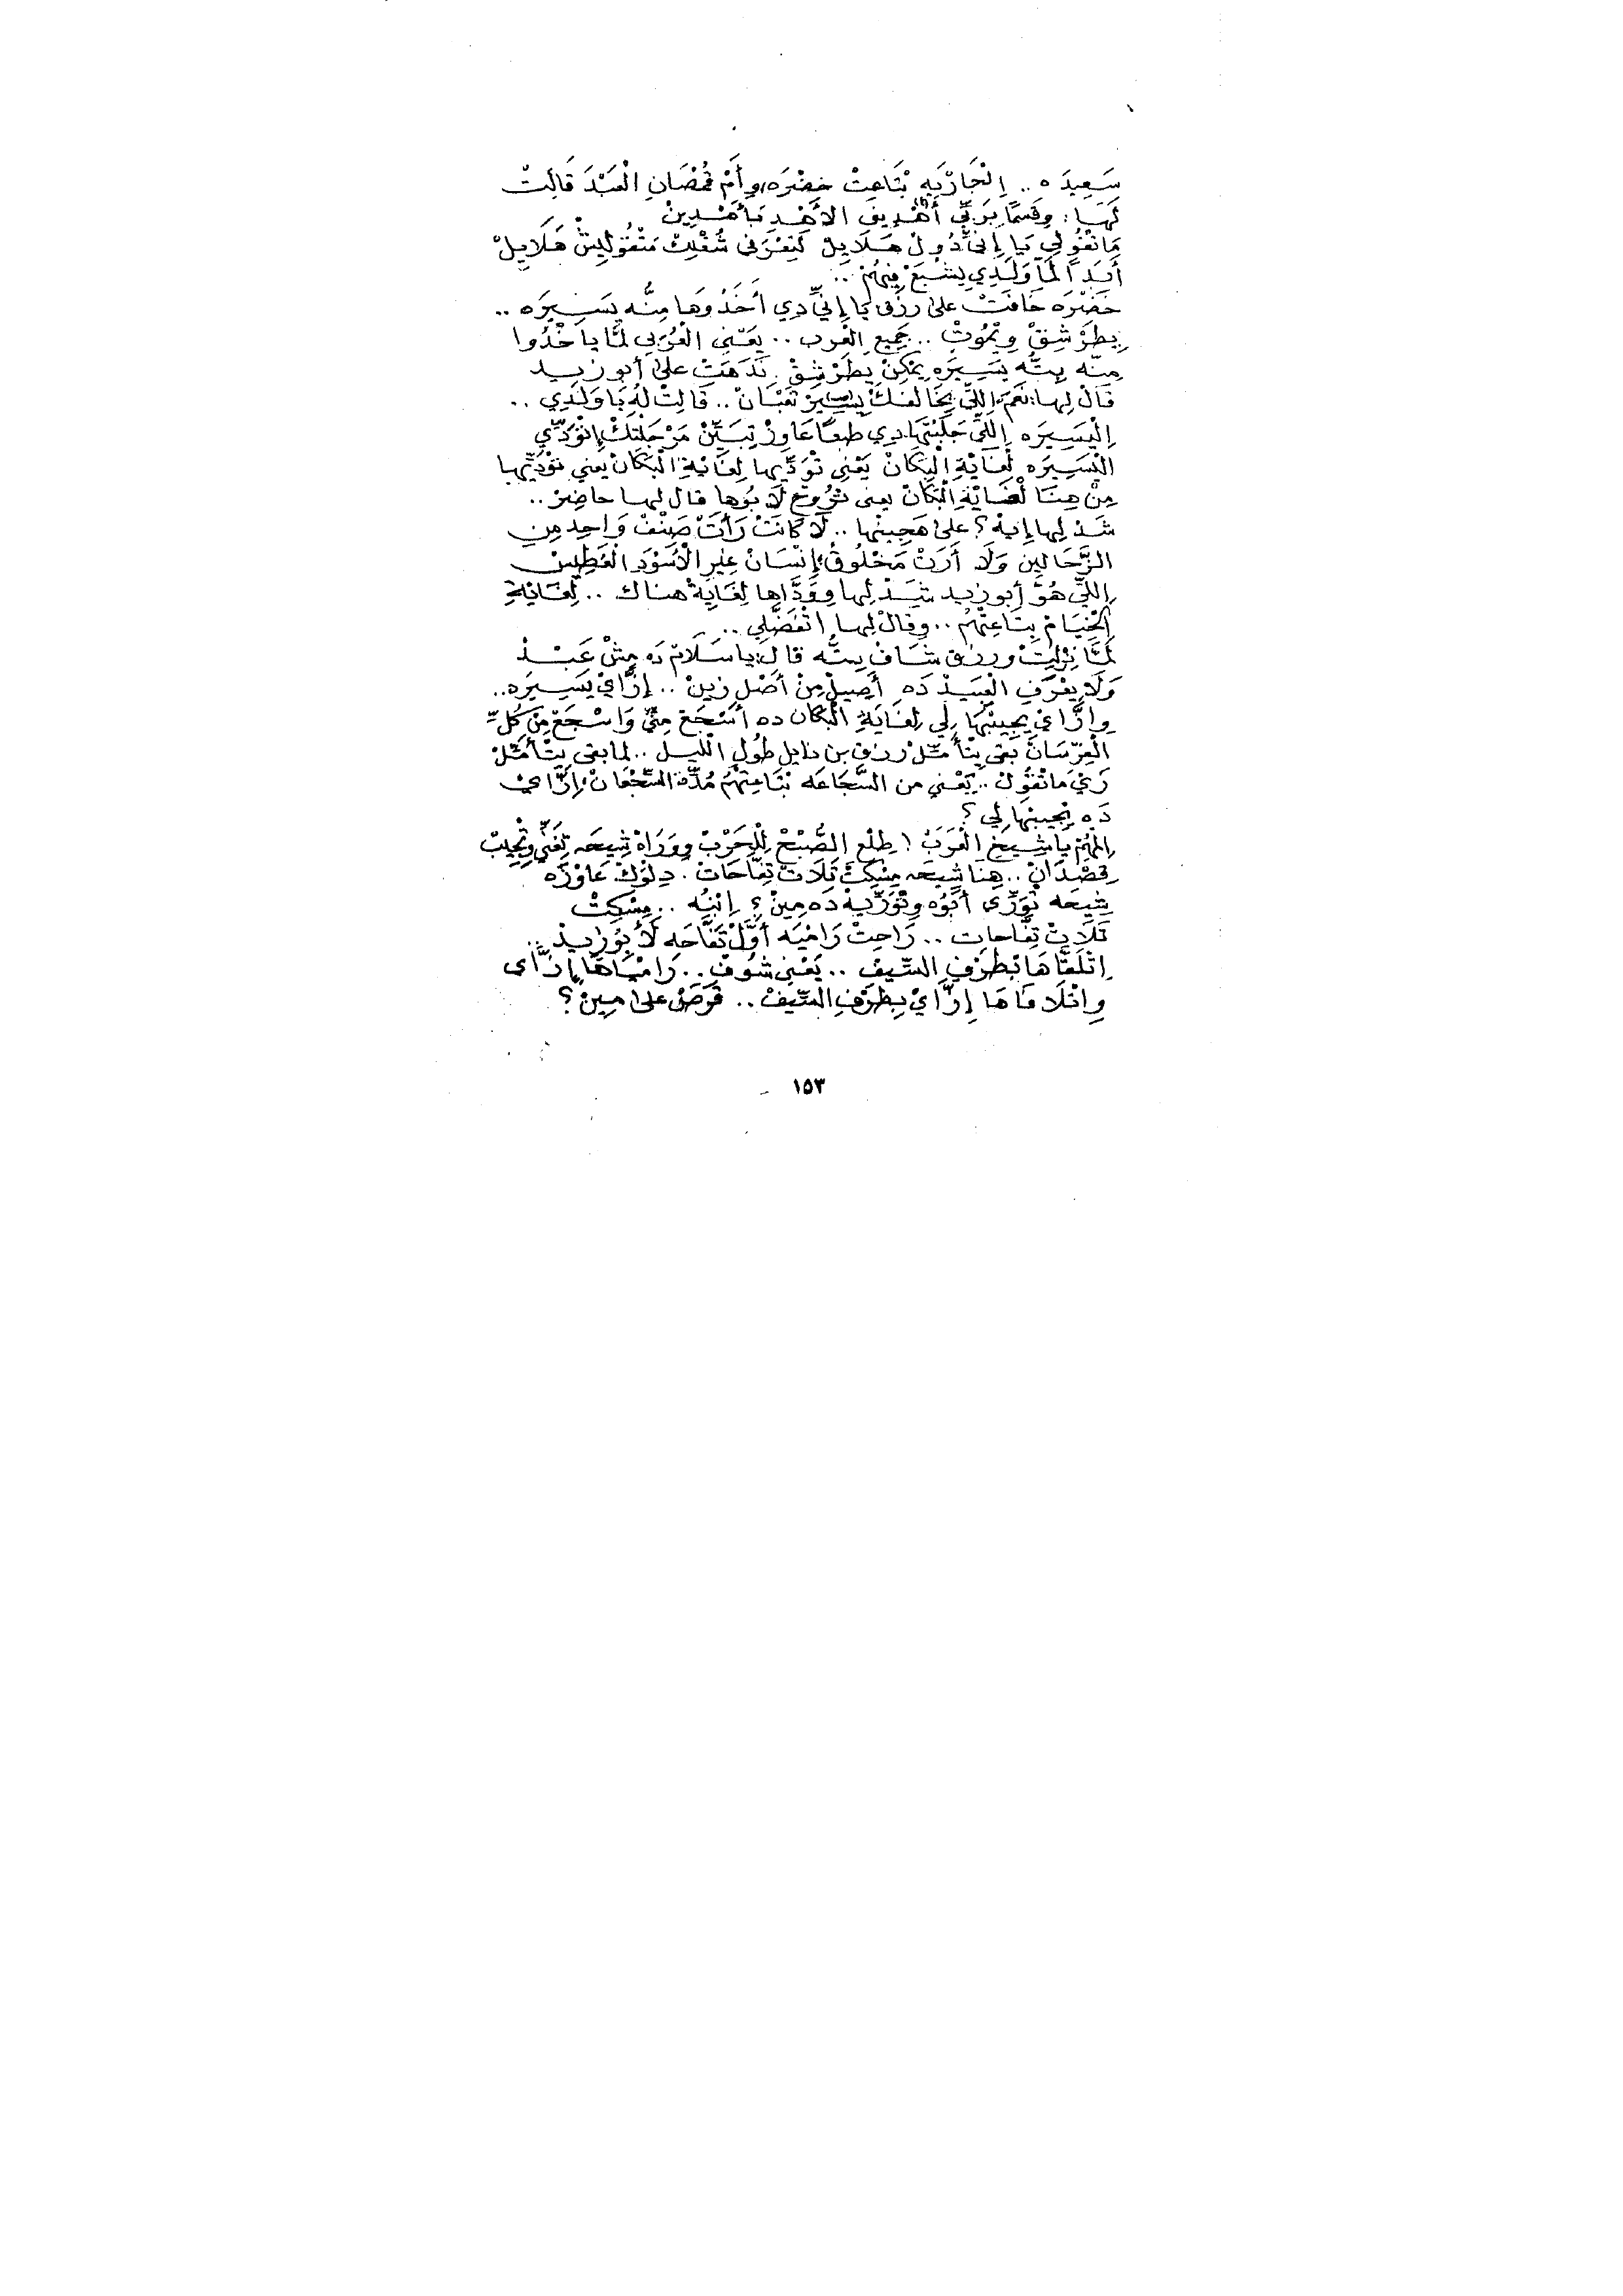 سَعِيدَه .. اِلْجَارْيَه بْتَاعِتْ خِضْرَه، وِأَمْ قُمْصَانِ الْعَبْدَ قَالِتْ
لَهَا : وِقَسَمًا بَرَبِّي أَهْدِيفِ الأَهْدِ
مَاتْقُولِي يَا إِنِّي دُولْ هَلَايِلْ لَيِعْرَفِي شُغْلِكْ مَتْقُولِيشْ هَلَايِلْ
أَبَدًا لَمَّا وَلَدِي يِشْبَعْ مِنْهُمْ ..
خَضْرَه خَافِتْ على رِزْق يا إِنِّي دِي أَخَدُوهَا مِنُّه يَسِيرَه ..
يِطَرْشِقْ وِيْمُوتْ .. جَمِيعِ الْعَرب .. يَعْنِي الْعَرَبي لَمَّا يَاخْدُوا
مِنُّه بِتُّه يَسِيرَه يِمْكِنْ يِطَرْشِقْ . نَدَهَتْ على أبو زيد
قَالْ لِهَا : نَعَمْ، اِللِّي يِخَالْفِكْ يِسِيرْ تَعْبَانْ .. قَالِتْ لُه يَا وَلَدِي ..
اِلْيَسِيرَه اِللِّي جَلَبْتَهَا دِي طبعًا عَاوِزْ تِبَيِّنْ مَرْجَلْتَكْ إِتْوَدِّي
الْيَسِيرَه لْغَايْةِ الْبَكَانْ يَعْنِي تْوَدِّيهَا لِغَايْةِ الْبَكَانْ يَعْنِي تْوَدِّيهَا
مِنْ هِنَا لْغَايْةِ الْبَكَانْ يعني تْرُوحْ لَابُوها قال لها حاضِرْ ..
شَدْ لِيها إِيهْ ؟ على هَجِينْها .. لَا كَانَتْ رَأَتْ صَنْفْ وَاحِد مِن
الرَّجَالِين وَلَا أَرَتْ مَخْلُوقْ إِنْسَانْ غِيرِ الْأَسْوَدِ الْغَطِيسْ
اِللِّي هُوَّ أبو زيد شَدْ لِيها وِوَدَّاها لِغَايِةْ هناك .. لِغَايْةِ
الْخِيَامْ بِتَاعِتْهُمْ .. وِقَالْ لِيها اِتْفَضَّلِي ..
لَمَّا نِزْلِتْ ورزق شَافْ بِتُّه قالَ : يا سَلَامْ دَه مِشْ عَبْدْ
وَلَا يِعْرَفِ الْعَبْدْ دَه أَصِيلْ مِنْ أَصْلِ زينْ .. إِزَّايْ يَسِيرَه ..
وِازَّايْ يِجِيبْهَا لِي لِغَايْةِ الْبَكَان ده أَشْجَعْ مِنِّي وَاشْجَعْ مِنْ كُلِّ
الْفِرْسَانْ بَقى يِتْأَمِّلْ رزق بن نايل طُولِ اللَّيلْ .. لما بقى يِتْأَمِّلْ
زَيِّ مَاتْقُولْ .. يَعْنِي من الشَّجَاعَه بْتَاعِتْهُمْ مُدَّةِ الشُّجْعَانْ إِزَّايْ
دَه يْجِيبْهَا لِي ؟
اِلْمُهِمْ يَا شِيخِ الْعَرَبْ ! طِلْعِ الصُّبْحْ لِلْحَرْبْ وِوَرَاهْ شِيحَه تِغَنِّي وِتْجِيبْ
قُصْدَانْ .. هِنَا شِيحَه مِسْكِتْ تَلَاتْ تِفَّاحَاتْ . دِلْوَكْ عَاوْزَه
شِيحَه تْوَرِّي أَبُوه وِتْوَرِّيهْ دَه مِينْ ؟ إِبْنُه .. مِسْكِتْ
تَلَاتْ تِفَّاحَاتِ .. رَاحِتْ رَامْيَه أَوِّلْ تفَّاحَه لَأَبُو زيدْ ..
اِتْلَقَّاهَا بْطَرْفِ السِّيفْ .. يَعْنِي شُوفْ .. رَامْيَاهَا إِزَّاى
وِاتْلَاقَاهَا إِزَّايْ بِطَرْفِ السِّيفْ .. على مِينْ ؟
١٥٣